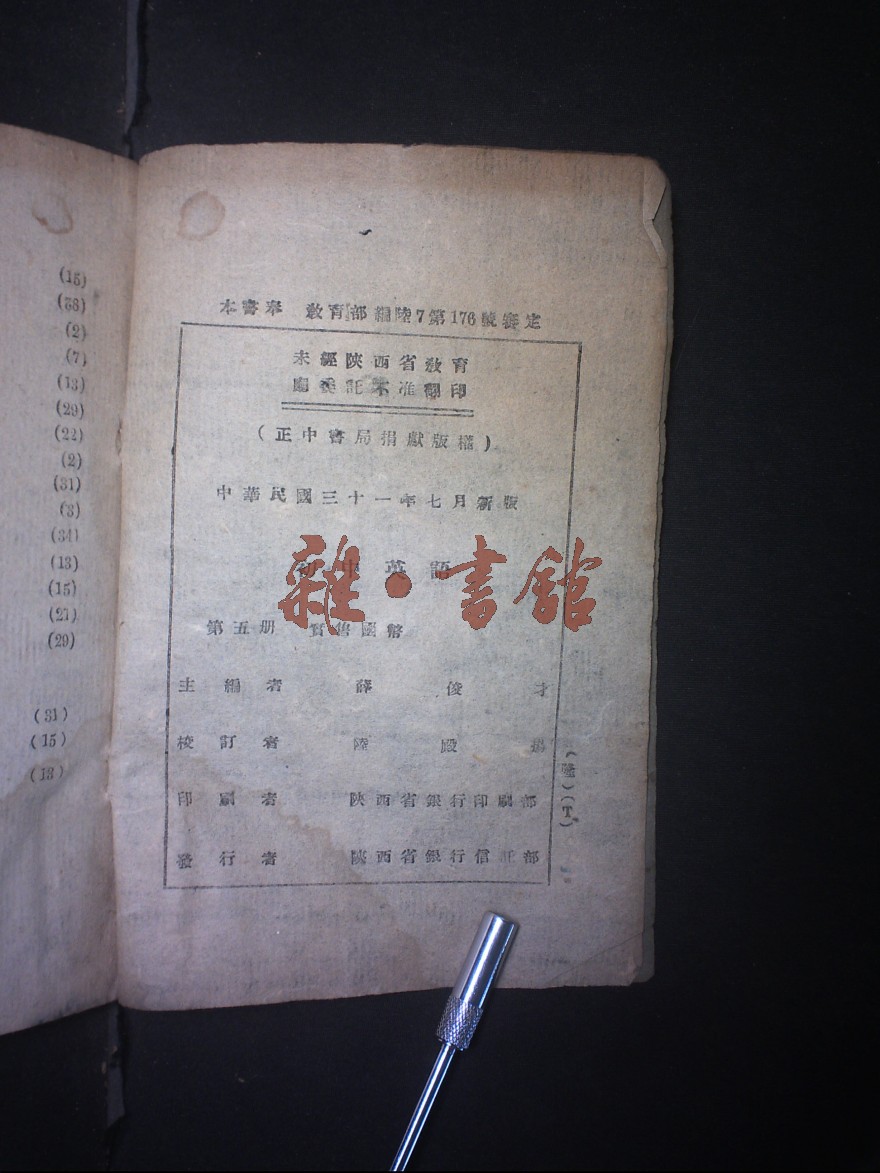 (15)
(38)
(2)
(7)
(13)
(29)
(22)
(2)
(31)
(3)
(34)
(13)
(15)
(21)
(29)
(31)
(15)
(13)
本書奉 敎育部編陸7第176號審定
未經陝西省敎育
廳委託不准翻印
(正中書局捐獻版權)
中華民國三十一年七月新版
初中英語
雜·書館
第五册 實售國幣
主編者 薛俊才
校訂者 陸殿揚
印刷者 陝西省銀行印刷部
發行者 陝西省銀行信託部
(T)